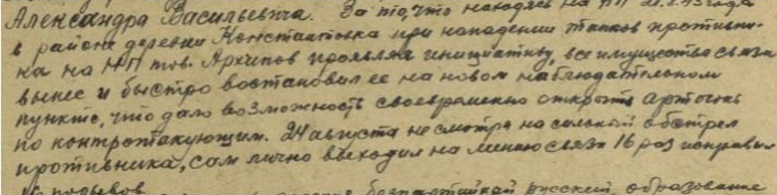 Александра Васильевича. За то, что находясь на НП 21.8.43 года
в районе деревни Константовка при нападении танков противни-
ка на НП тов. Архипов проявляя инициативу, все имущество связи
вынес и быстро востановил ее на новом наблюдательном
пункте, что дало возможность своевременно открыть артогонь
по контротакующим. 24 августа не смотря на сильный обстрел
противника, сам лично выходил на линию связи 16 раз исправил
порывов. безпартийной русский, образование